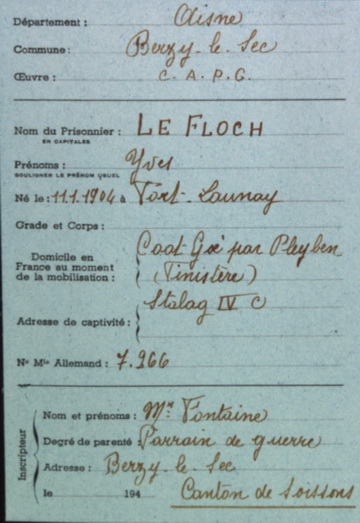 Département : Aisne
Commune : Berzy-le-Sec
Œuvre : C. A. P. G.
Nom du Prisonnier : LE FLOCH
EN CAPITALES
Prénoms : Yves
SOULIGNER LE PRÉNOM USUEL
Né le : 11.1.1904 à Port-Launay
Grade et Corps :
Domicile en France au moment de la mobilisation : Coat-Gx par Pleyben
(Finistère)
Adresse de captivité : Stalag IV C
No Mle Allemand : 7.966
Inscripteur
Nom et prénoms : Mr Fontaine
Degré de parenté : Parrain de guerre
Adresse : Berzy-le-Sec
le 194 Canton de Soissons